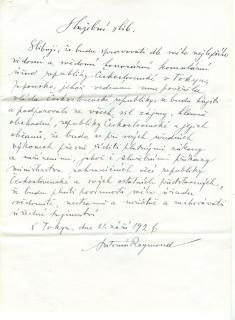 Služební slib.
Slibuji, že budu spravovati dle svého nejlepšího
vědomí a svědomí honorární konsulární
úřad republiky Československé v Tokyu,
Japonsko, jehož vedením mne pověřila
vláda Československé republiky, že budu hájiti
a podporovati ze všech sil zájmy, hlavně
obchodní, republiky Československé a jejích
občanů, že budu se při svých úředních
výkonech přesně říditi platnými zákony
a nařízeními, jakož i služebními příkazy
ministerstva zahraničních věcí republiky
Československé a svých ostatních představených,
že budu plniti povinnosti svého úřadu
svědomitě, nestranně a nezištně a zachovávati
úřední tajemství.
V Tokyu, dne 21. září 1926
Antonín Raymond